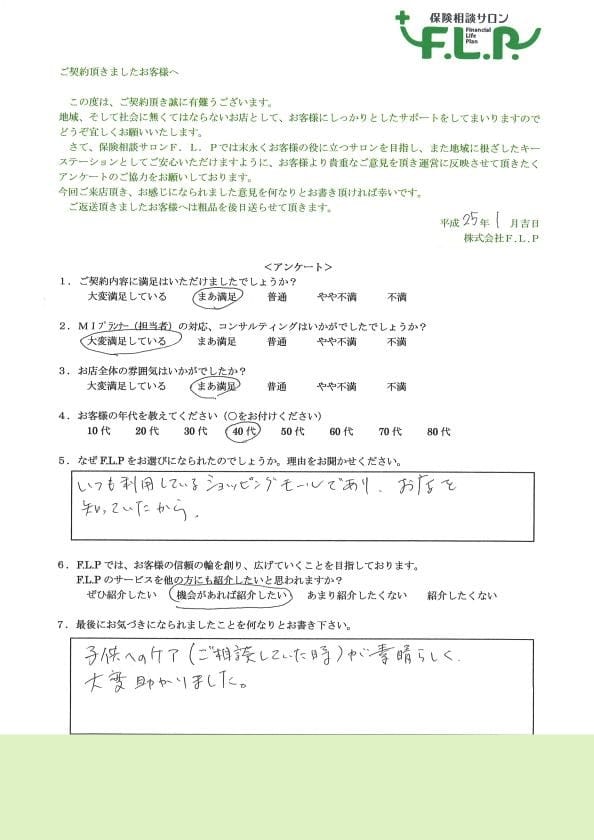 保険相談サロン
F.L.P.
Financial
Life
Plan
ご契約頂きましたお客様へ
この度は、ご契約頂き誠に有難うございます。
地域、そして社会に無くてはならないお店として、お客様にしっかりとしたサポートをしてまいりますので
どうぞ宜しくお願いいたします。
さて、保険相談サロンＦ．Ｌ．Ｐでは末永くお客様の役に立つサロンを目指し、また地域に根ざしたキー
ステーションとしてご安心いただけますように、お客様より貴重なご意見を頂き運営に反映させて頂きたく
アンケートのご協力をお願いしております。
今回ご来店頂き、お感じになられました意見を何なりとお書き頂ければ幸いです。
ご返送頂きましたお客様へは粗品を後日送らせて頂きます。
平成 25年 1 月吉日
株式会社F.L.P
＜アンケート＞
１．ご契約内容に満足はいただけましたでしょうか？
大変満足している まあ満足 普通 やや不満 不満
２．ＭＩプランナー（担当者）の対応、コンサルティングはいかがでしたでしょうか？
大変満足している まあ満足 普通 やや不満 不満
３．お店全体の雰囲気はいかがでしたか？
大変満足している まあ満足 普通 やや不満 不満
４．お客様の年代を教えてください（○をお付けください）
10代 20代 30代 40代 50代 60代 70代 80代
５．なぜF.L.Pをお選びになられたのでしょうか。理由をお聞かせください。
いつも利用しているショッピングモールであり、お店を
知っていたから。
６．F.L.Pでは、お客様の信頼の輪を創り、広げていくことを目指しております。
F.L.Pのサービスを他の方にも紹介したいと思われますか？
ぜひ紹介したい 機会があれば紹介したい あまり紹介したくない 紹介したくない
７．最後にお気づきになられましたことを何なりとお書き下さい。
子供へのケア（ご相談していた時）が素晴らしく、
大変助かりました。